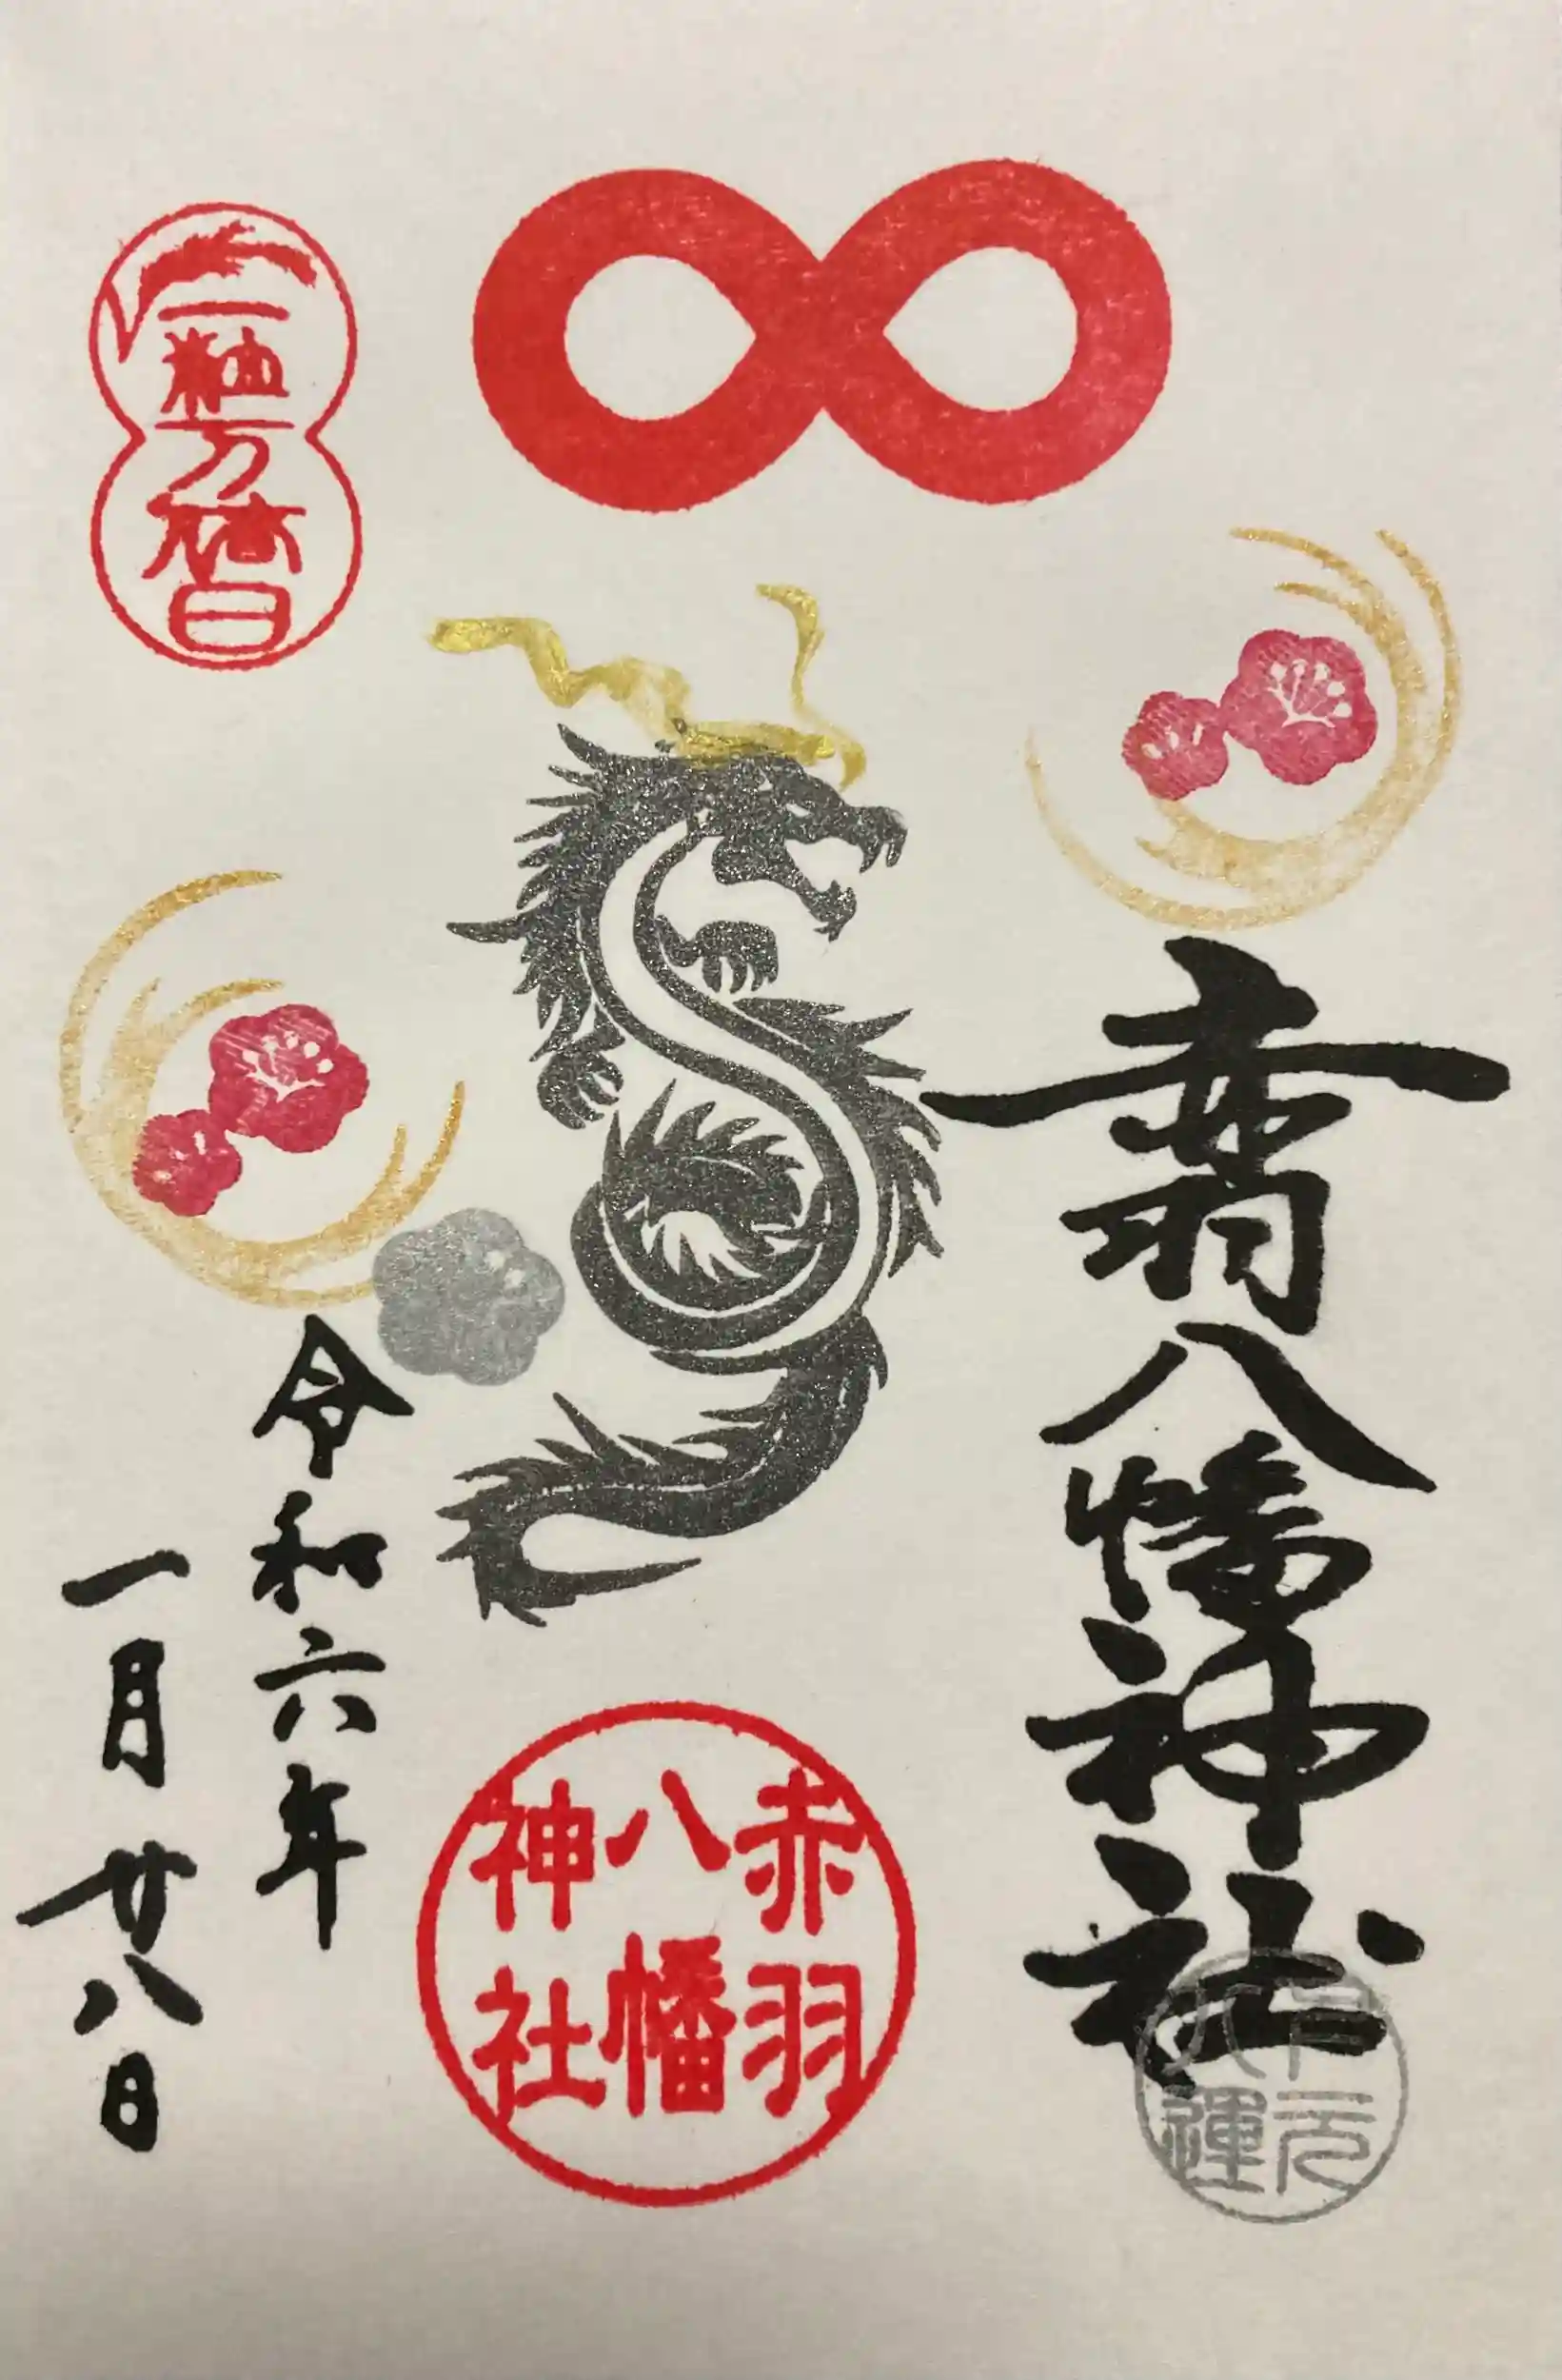 赤羽八幡神社
赤羽
八幡
神社
一粒万倍日
令和六年
一月廿八日